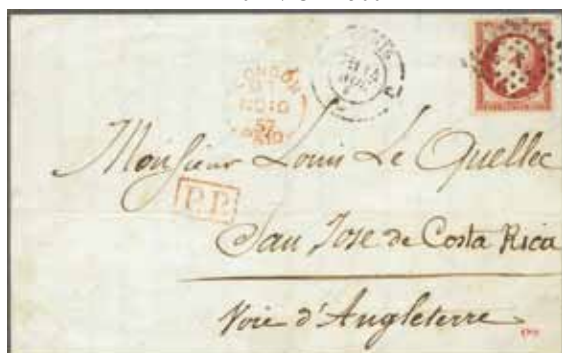 LONDON
57
PAID
Monsieur Louis Le Quellec
P.P.
San Jose de Costa Rica
Voie d'Angleterre